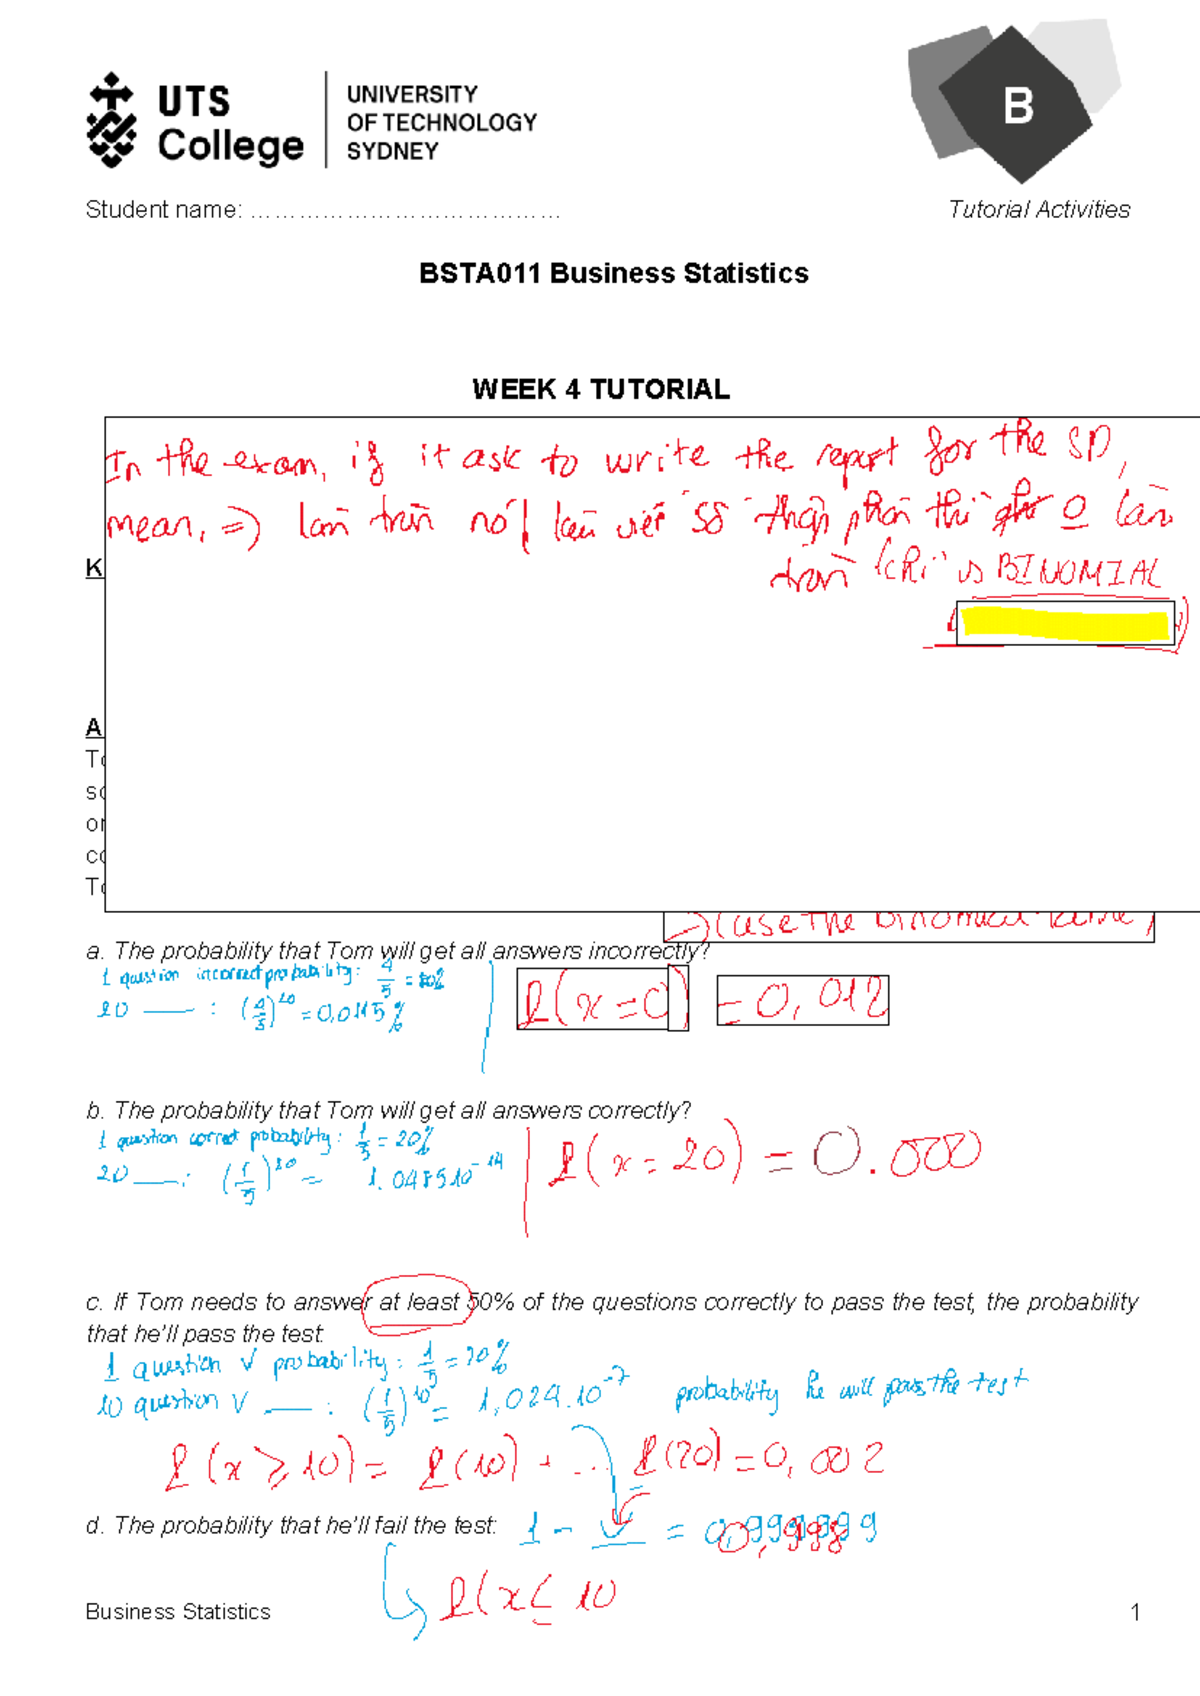 UTS College
UNIVERSITY OF TECHNOLOGY SYDNEY
B
Student name: ……………………………………
Tutorial Activities
BSTA011 Business Statistics
WEEK 4 TUTORIAL
In the exam, if it ask to write the report for the SD,
mean, => làm tròn nó, lấy viết số thập phân thì ghi 0 làm
K
tròn is BINOMIAL
A
To
so
or
co
To
=> (use the binomial table)
a. The probability that Tom will get all answers incorrectly?
1 question incorrect probability: 4/5 = 80%
20 — : (4/5)^20 = 0,0115%
P(x=0) = 0,012
b. The probability that Tom will get all answers correctly?
1 question correct probability: 1/5 = 20%
20 — : (1/5)^20 = 1.0485 10^-14
P(x=20) = 0.000
c. If Tom needs to answer at least 50% of the questions correctly to pass the test, the probability
that he'll pass the test:
1 question v probability: 1/5 = 20%
10 question v — : (1/5)^10 = 1,024.10^-7 probability he will pass the test
P(x ≥ 10) = P(10) + ... P(20) = 0,002
d. The probability that he'll fail the test: 1 - = 0,998
P(x ≤ 10
Business Statistics
1